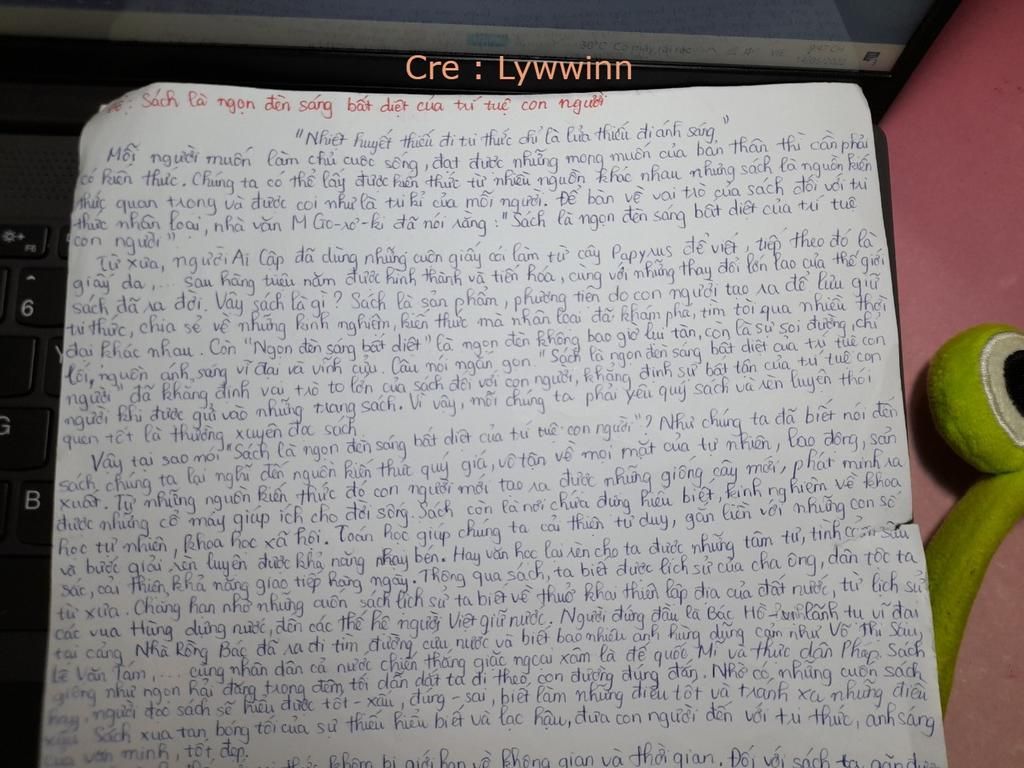 30°C Có mây rải rác VIE 9:47 CH
14/05/2022
Cre : Lywwinn
Sách là ngọn đèn sáng bất diệt của trí tuệ con người
"Nhiệt huyết thiếu đi tri thức chỉ là lửa thiếu đi ánh sáng"
Mỗi người muốn làm chủ cuộc sống, đạt được những mong muốn của bản thân thì cần phải
có kiến thức. Chúng ta có thể lấy được kiến thức từ nhiều nguồn khác nhau nhưng sách là nguồn kiến
thức quan trọng và được coi như là tri kỉ của mỗi người. Để bàn về vai trò của sách đối với tri
thức nhân loại, nhà văn M Go-rơ-ki đã nói rằng: "Sách là ngọn đèn sáng bất diệt của trí tuệ
con người"
Từ xưa, người Ai Cập đã dùng những cuộn giấy cói làm từ cây Papyrus để viết, tiếp theo đó là
giấy da,... sau hàng triệu năm được hình thành và tiến hóa, cùng với những thay đổi lớn lao của thế giới
sách đã ra đời. Vậy sách là gì? Sách là sản phẩm, phương tiện do con người tạo ra để lưu giữ
tri thức, chia sẻ về những kinh nghiệm, kiến thức mà nhân loại đã khám phá, tìm tòi qua nhiều thời
đại khác nhau. Còn "Ngọn đèn sáng bất diệt" là ngọn đèn không bao giờ lụi tàn, còn là sự soi đường, chỉ
lối, nguồn ánh sáng vĩ đại và vĩnh cửu. Câu nói ngắn gọn "Sách là ngọn đèn sáng bất diệt của trí tuệ con
người" đã khẳng định vai trò to lớn của sách đối với con người, khẳng định sự bất tận của trí tuệ con
người khi được gửi vào những trang sách. Vì vậy, mỗi chúng ta phải yêu quý sách và rèn luyện thói
quen tốt là thường xuyên đọc sách
Vậy tại sao nói "Sách là ngọn đèn sáng bất diệt của trí tuệ con người"? Như chúng ta đã biết nói đến
sách, chúng ta lại nghĩ đến nguồn kiến thức quý giá, vô tận về mọi mặt của tự nhiên, lao động, sản
xuất. Từ những nguồn kiến thức đó con người mới tạo ra được những giống cây mới, phát minh ra
được những cỗ máy giúp ích cho đời sống. Sách còn là nơi chứa đựng hiểu biết, kinh nghiệm về khoa
học tự nhiên, khoa học xã hội. Toán học giúp chúng ta cải thiện tư duy, gắn liền với những con số
và bước giải rèn luyện được khả năng nhạy bén. Hay văn học lại rèn cho ta được những tâm tư, tình cảm sâu
sắc, cải thiện khả năng giao tiếp hàng ngày. Thông qua sách, ta biết được lịch sử của cha ông, dân tộc ta
từ xưa. Chẳng hạn nhờ những cuốn sách lịch sử ta biết về thuở khai thiên lập địa của đất nước, từ lịch sử
các vua Hùng dựng nước, đến các thế hệ người Việt giữ nước. Người đứng đầu là Bác Hồ lãnh tụ vĩ đại
tại cảng Nhà Rồng Bác đã ra đi tìm đường cứu nước và biết bao nhiêu anh hùng dũng cảm như Võ Thị Sáu,
Lê Văn Tám,... cùng nhân dân cả nước chiến thắng giặc ngoại xâm là đế quốc Mĩ và thực dân Pháp. Sách
giống như ngọn hải đăng trong đêm tối dẫn dắt ta đi theo con đường đúng đắn. Nhờ có những cuốn sách
hay, người đọc sách sẽ hiểu được tốt - xấu, đúng - sai, biết làm những điều tốt và tránh xa những điều
xấu. Sách xua tan bóng tối của sự thiếu hiểu biết và lạc hậu, đưa con người đến với tri thức, ánh sáng
của văn minh, tốt đẹp.
thức không bị giới hạn về không gian và thời gian. Đối với sách ta